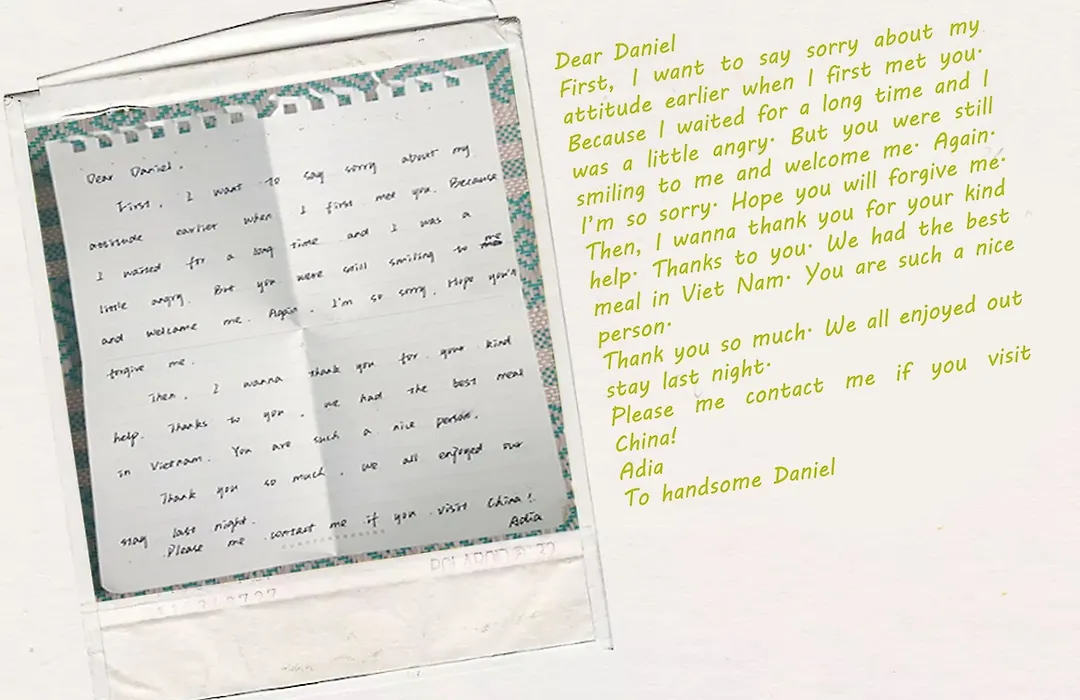 Dear Daniel.
First, I want to say sorry about my
attitude earlier when I first met you. Because
I waited for a long time and I was a
little angry. But you were still smiling to me
and welcome me. Again, I'm so sorry. Hope you'll
forgive me.
Then, I wanna thank you for your kind
help. Thanks to you, we had the best meal
in Vietnam. You are such a nice person.
Thank you so much. We all enjoyed our
stay last night.
Please me contact me if you visit China!
Adia
POLAROID ® 32
Dear Daniel
First, I want to say sorry about my
attitude earlier when I first met you.
Because I waited for a long time and I
was a little angry. But you were still
smiling to me and welcome me. Again.
I'm so sorry. Hope you will forgive me.
Then, I wanna thank you for your kind
help. Thanks to you. We had the best
meal in Viet Nam. You are such a nice
person.
Thank you so much. We all enjoyed out
stay last night.
Please me contact me if you visit
China!
Adia
To handsome Daniel